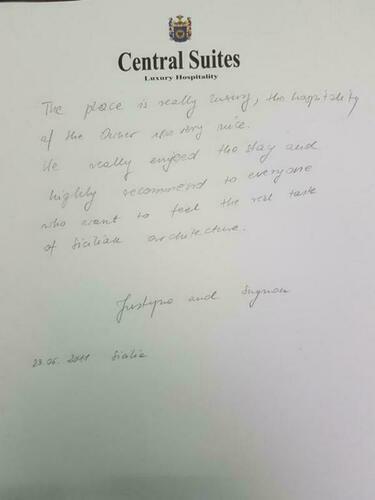 Central Suites
Luxury Hospitality
The place is really luxury, the hospitality
of the Owner was very nice.
We really enjoed the stay and
highly recommend to everyone
who want to feel the real taste
of Sicilian architecture.
Justyna and
23.06. 2011 Sicilia